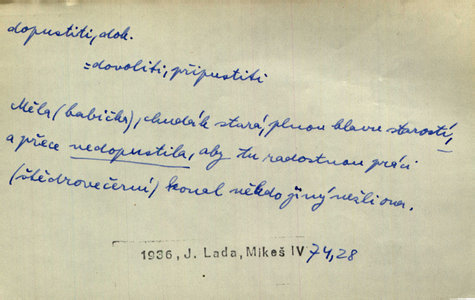 dopustiti, dok.
=dovoliti, připustiti
Měla (babička), chudák stará, plnou hlavu starostí,
a přece nedopustila, aby tu radostnou práci
(štědrovečerní) konal někdo jiný nežli ona.
1936, J. Lada, Mikeš IV 74,28